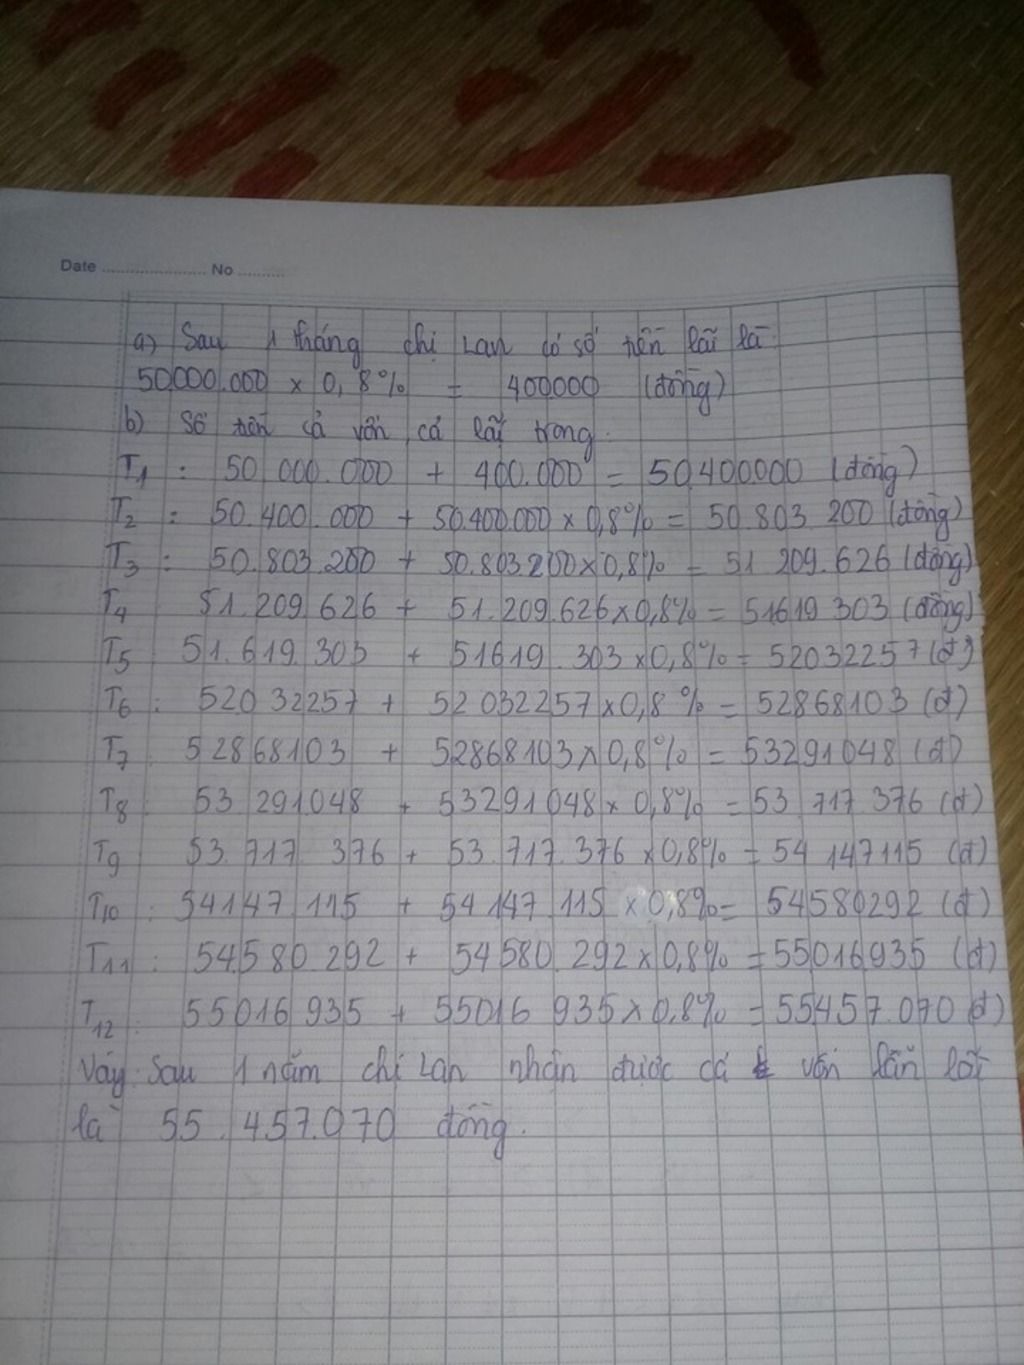 Date ........................ No ..........
a) Sau 1 tháng chị Lan có số tiền lãi là
50000.000 x 0,8% = 400000 (đồng)
b) Số tiền cả vốn cả lãi trong
T1 : 50 000.000 + 400.000 = 50.400000 (đồng)
T2 : 50.400.000 + 50.400.000 x 0,8% = 50.803.200 (đồng)
T3 : 50.803.200 + 50.803.200 x 0,8% = 51 209.626 (đồng)
T4 51.209.626 + 51.209.626 x 0,8% = 51619 303 (đồng)
T5 51.619.303 + 51619.303 x 0,8% = 52032257 (đ)
T6 : 52032257 + 52032257 x 0,8% = 52868103 (đ)
T7 52868103 + 52868103 x 0,8% = 53291048 (đ)
T8 : 53.291048 + 53291048 x 0,8% = 53 717 376 (đ)
T9 53.717 376 + 53.717.376 x 0,8% = 54 147115 (đ)
T10 : 54147 115 + 54 147.115 x 0,8% = 54580292 (đ)
T11 : 54580.292 + 54580.292 x 0,8% = 55016935 (đ)
T12 : 55016 935 + 55016 935 x 0,8% = 55457.070 (đ)
Vậy sau 1 năm chị Lan nhận được cả vốn lẫn lời
là 55.457.070 đồng.